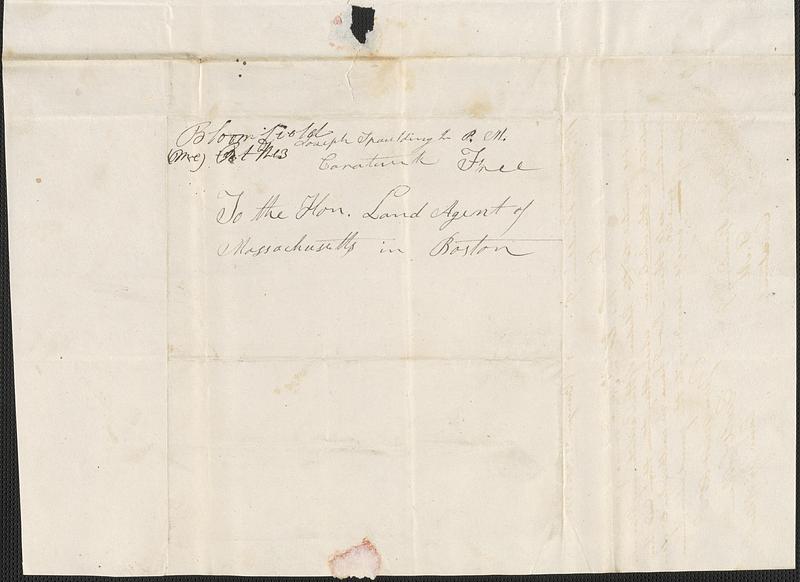 Bloomfield
(Me) Oct
Joseph Spaulding Jr P. M.
Caratunk Free
To the Hon. Land Agent of
Massachusetts in Boston